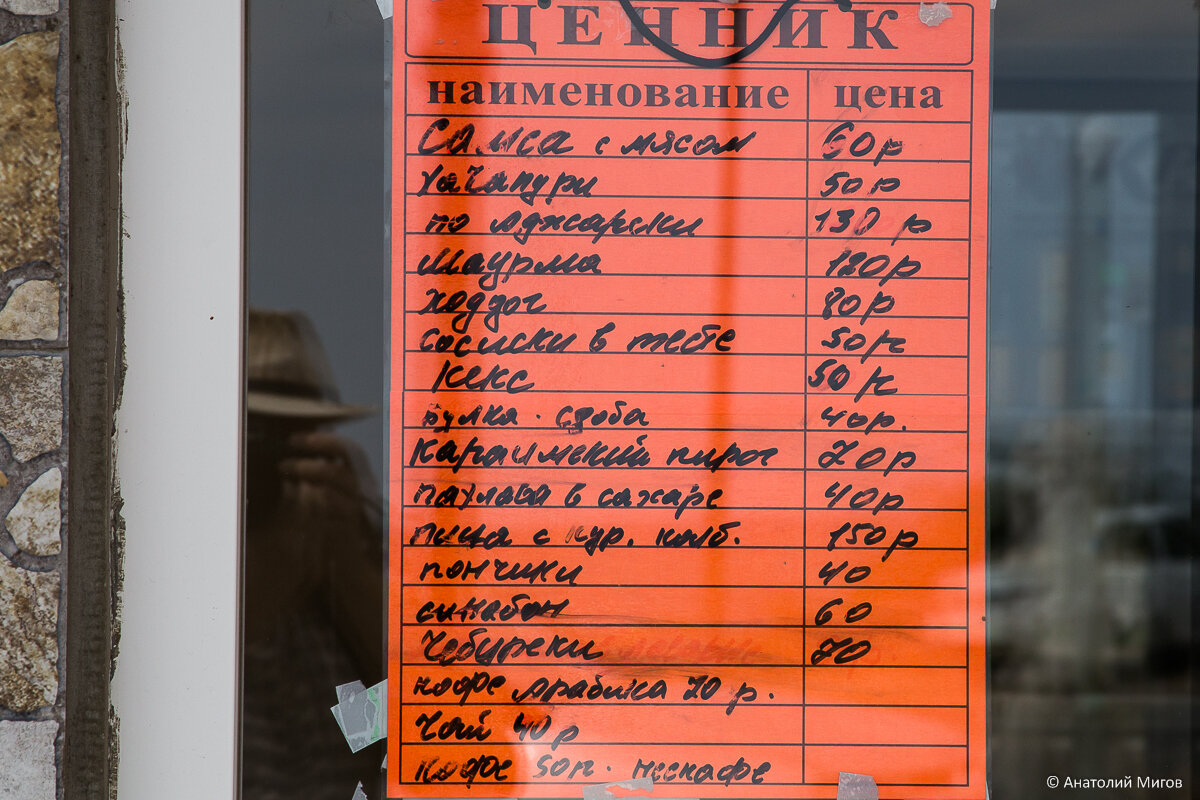 ЦЕННИК
наименование цена
Самса с мясом 60р
хачапури 50р
по аджарски 130 р
Шаурма 120р
Ходдог 80р
сосиски в тесте 50р
Кекс 50р
Булка. сдоба 40р.
Караимский пирог 70р
пахлава в сахаре 40р
пицца с кур. колб. 150р
пончики 40
синабон 60
Чебуреки 70
кофе арабика 70 р.
Чай 40р
Кофе 50р. нескафе
© Анатолий Мигов